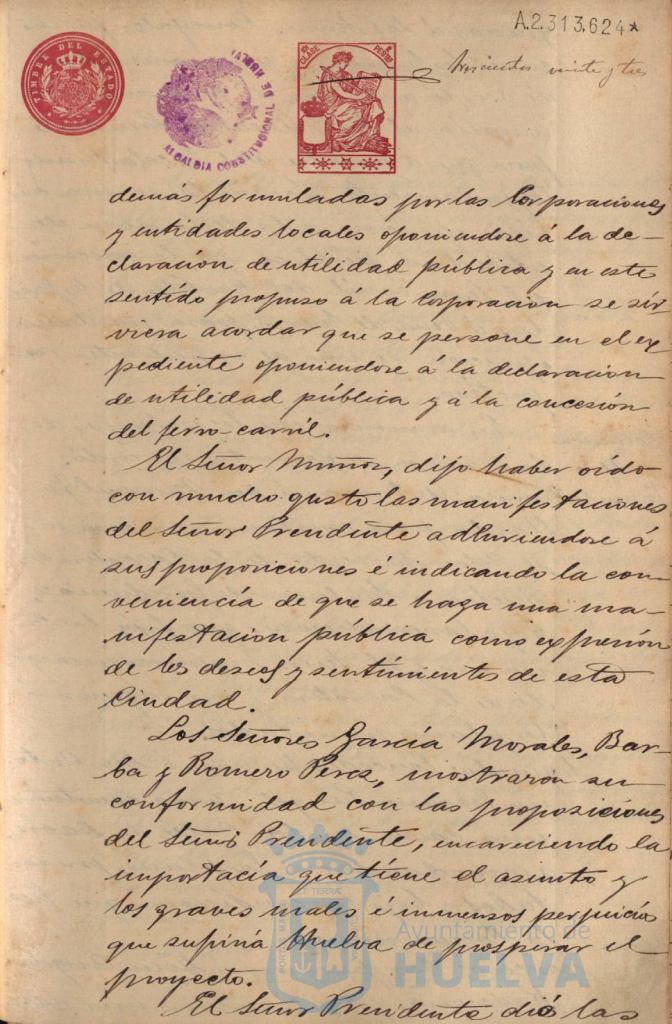 A.2.313.624*
TIMBRE DEL ESTADO
ALCALDIA CONSTITUCIONAL DE HUELVA
CLASE
PESETAS
trescientos veinte y tres
demás formuladas por las Corporaciones
y entidades locales oponiendose á la de-
claración de utilidad pública y en este
sentido propuso á la Corporacion se sir
viera acordar que se persone en el ex
pediente oponiendose á la declaracion
de utilidad pública y á la concesión
del ferro-carril.
El Señor Muñoz, dijo haber oido
con mucho gusto las manifestaciones
del Señor Presidente adhiriendose á
sus proposiciones é indicando la con-
veniencia de que se haga una ma-
nifestacion pública como expresión
de los deseos y sentimientos de esta
Ciudad.
Los Señores García Morales, Bar-
ba y Romero Perez, mostraron su
conformidad con las proposiciones
del Señor Presidente, encareciendo la
importacía que tiene el asunto y
los graves males é inmensos perjuicios
que sufriria Huelva de prosperar el
proyecto.
El Señor Presidente dió las
Ayuntamiento de
HUELVA